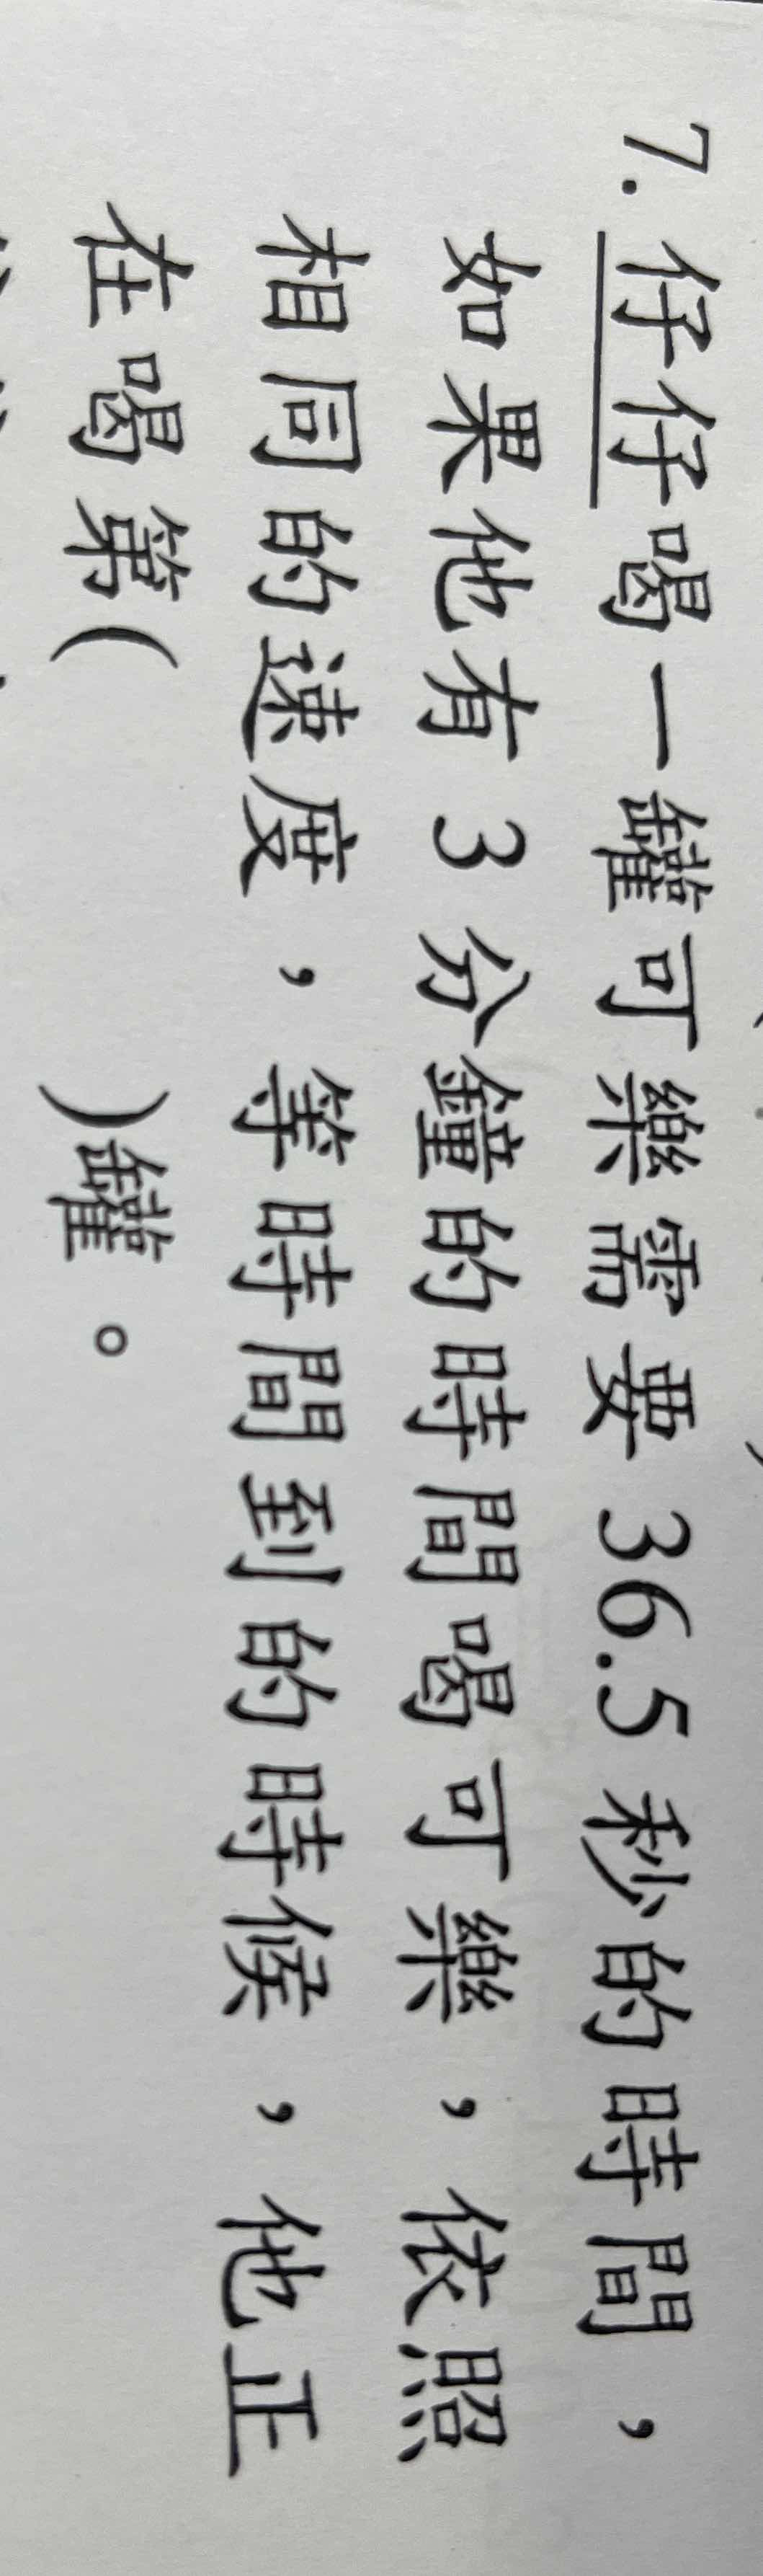 7. 仔仔喝一罐可樂需要 36.5 秒的時間，
如果他有 3 分鐘的時間喝可樂，依照
相同的速度，等時間到的時候，他正
在喝第(　　　)罐。